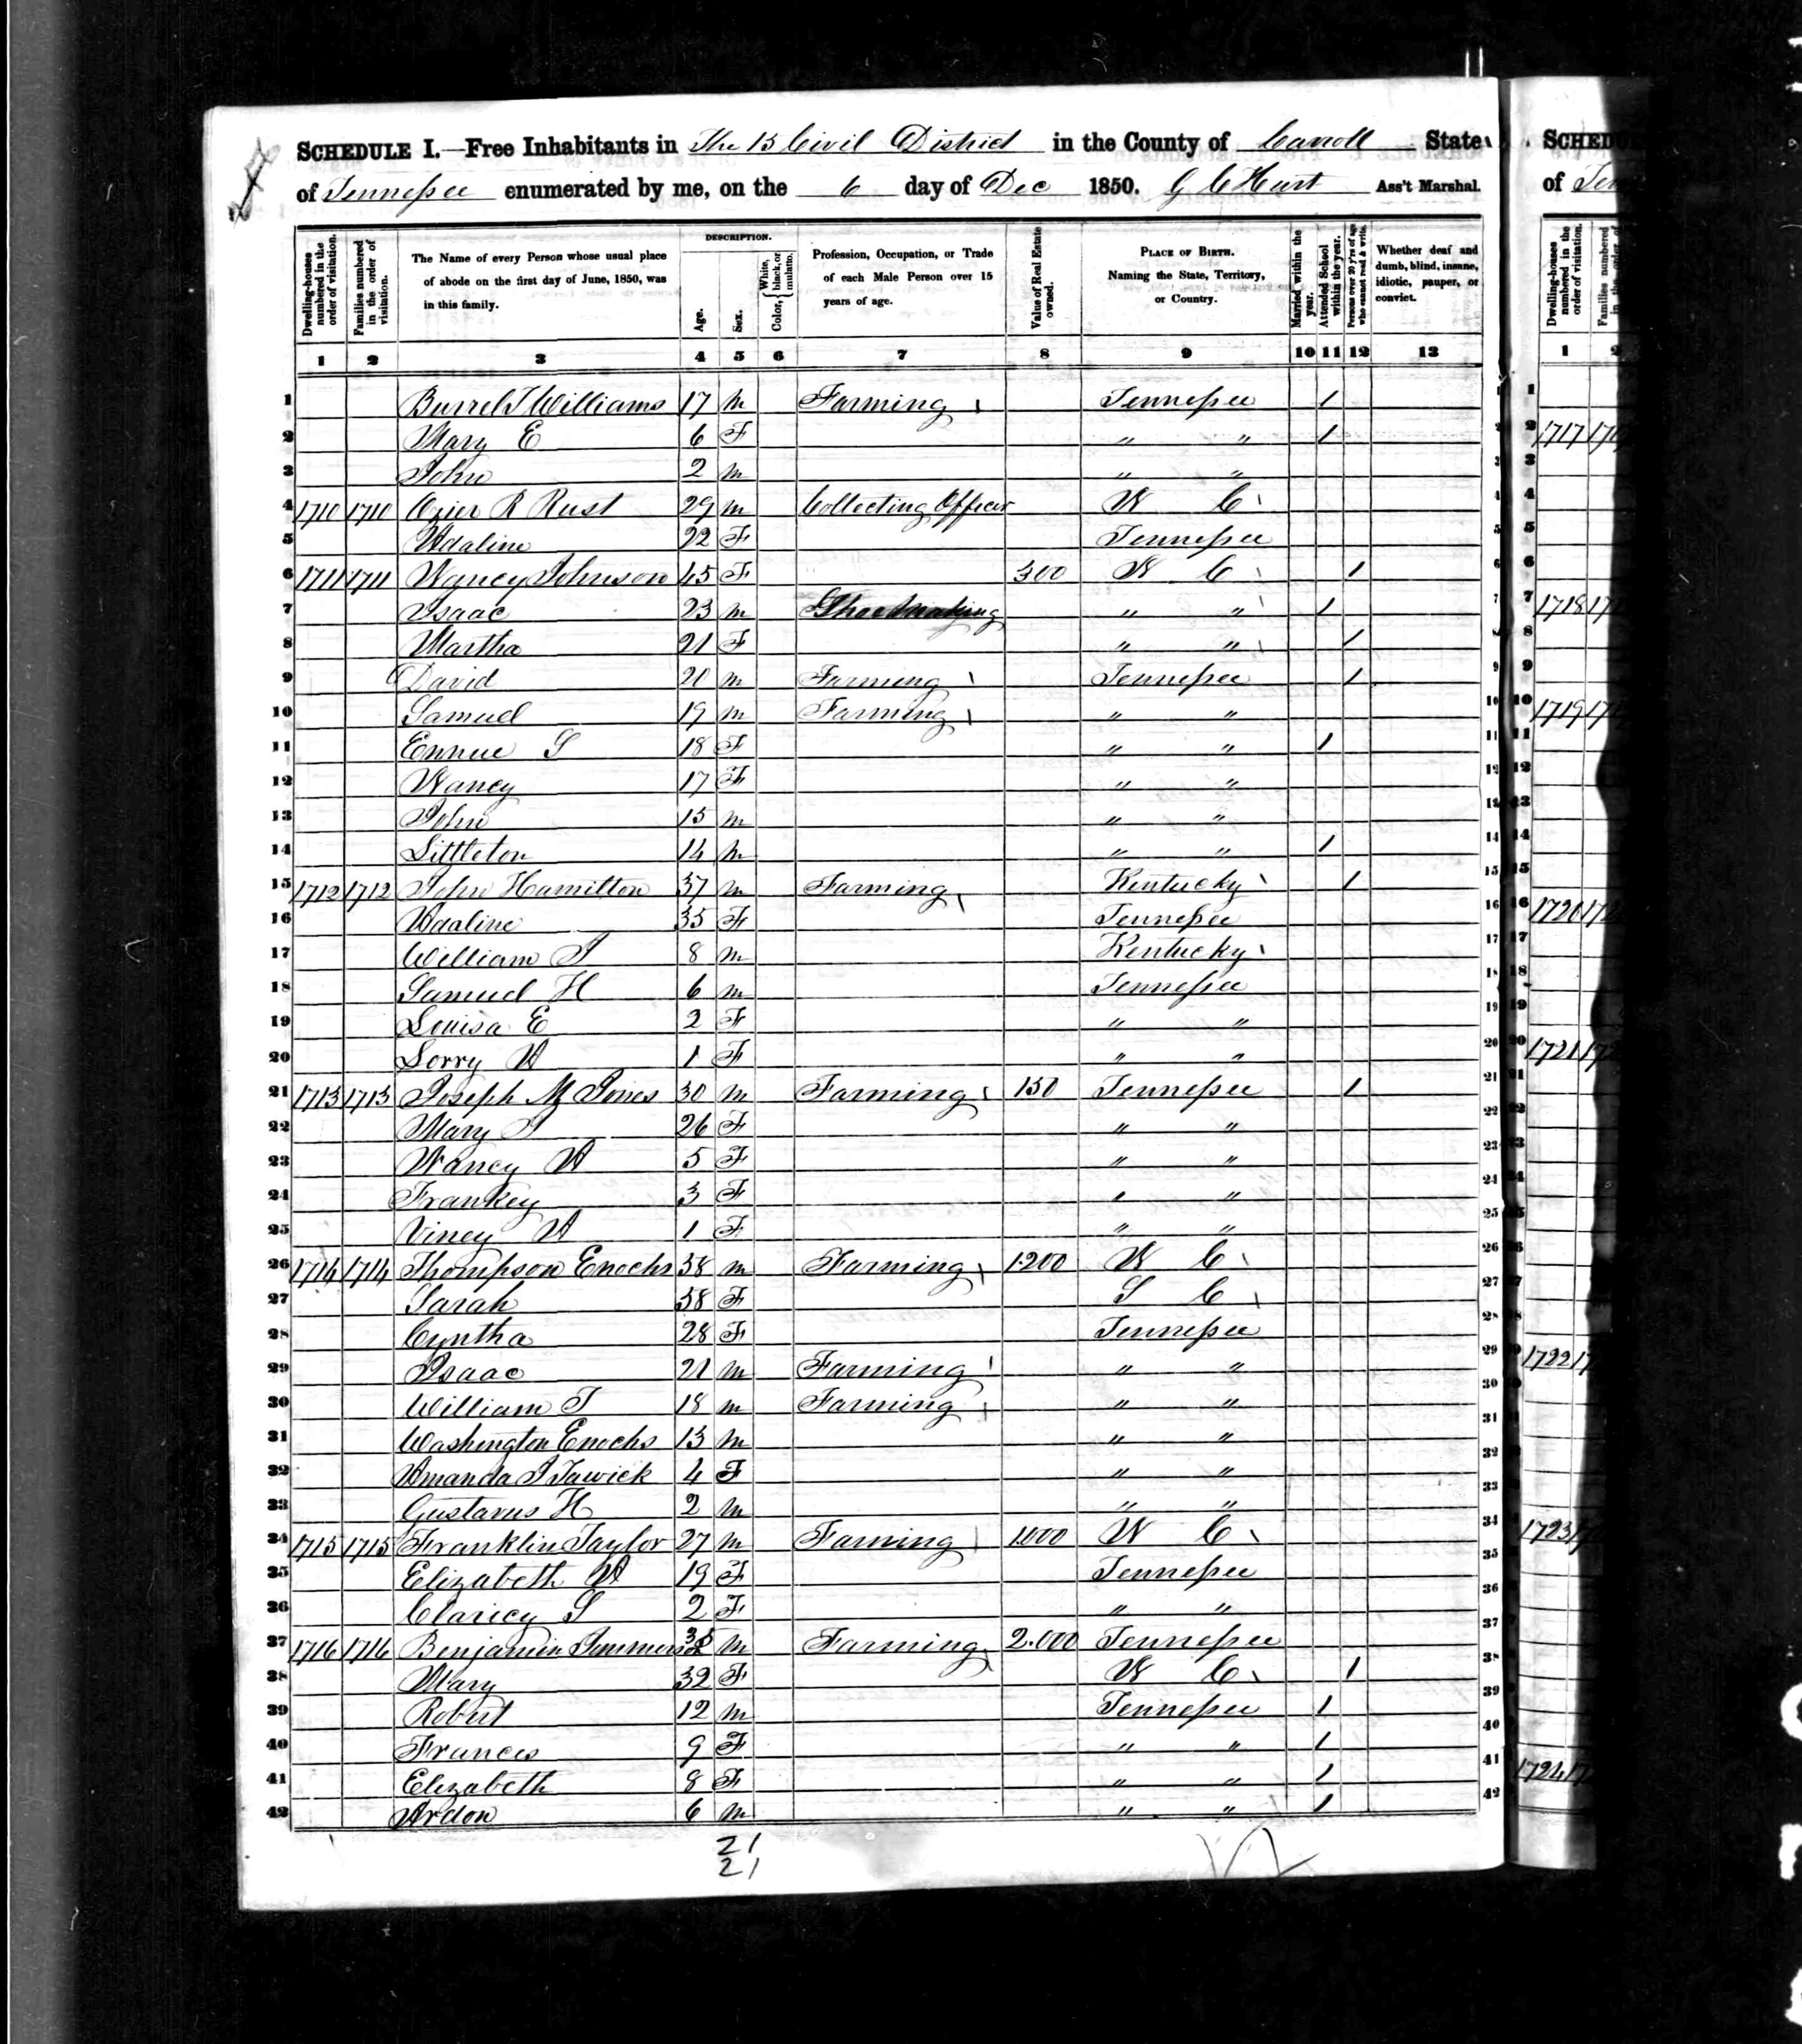 SCHEDULE I.—Free Inhabitants in The 13 Civil District in the County of Carroll State
of Tennessee enumerated by me, on the 6 day of Dec 1850. G C Hurt Ass't Marshal.
Dwelling-houses numbered in the order of visitation. Families numbered in the order of visitation. The Name of every Person whose usual place of abode on the first day of June, 1850, was in this family. DESCRIPTION. Age. Sex. Color, { White, black, or mulatto. Profession, Occupation, or Trade of each Male Person over 15 years of age. Value of Real Estate owned. PLACE OF BIRTH. Naming the State, Territory, or Country. Married within the year. Attended School within the year. Persons over 20 y'rs of age who cannot read & write. Whether deaf and dumb, blind, insane, idiotic, pauper, or convict.
1 2 3 4 5 6 7 8 9 10 11 12 13
1 Burrel T Williams 17 m Farming Tennessee / 1
2 Mary E 6 F " " / 2
3 John 2 m " " 3
4 1710 1710 R Rust 29 m Collecting Officer N C 4
5 Adaline 22 F Tennessee 5
6 1711 1711 Johnson 45 F 300 N C / 6
7 Isaac 23 m Shoemaking " " / 7
8 Martha 21 F " " / 8
9 David 20 m Farming Tennessee / 9
10 Samuel 19 m Farming " " 10
11 S 18 F " " / 11
12 Nancy 17 F " " 12
13 John 15 m " " 13
14 Littleton 14 m " " / 14
15 1712 1712 John Hamilton 37 m Farming Kentucky / 15
16 Adaline 35 F Tennessee 16
17 William J 8 m Kentucky 17
18 Samuel H 6 m Tennessee 18
19 Louisa E 2 F " " 19
20 Sorry A 1 F " " 20
21 1713 1713 Joseph M Jones 30 m Farming 150 Tennessee / 21
22 Mary J 26 F " " 22
23 Nancy A 5 F " " 23
24 Frankey 3 F " " 24
25 Viney A 1 F " " 25
26 1714 1714 Thompson Enochs 58 m Farming 1200 N C 26
27 Sarah 58 F S C 27
28 Cyntha 28 F Tennessee 28
29 Isaac 21 m Farming " " 29
30 William T 18 m Farming " " 30
31 Washington Enochs 13 m " " 31
32 Amanda J Tawick 4 F " " 32
33 Gustavus H 2 m " " 33
34 1715 1715 Franklin Taylor 27 m Farming 1000 N C 34
35 Elizabeth A 19 F Tennessee 35
36 Claricy S 2 F " " 36
37 1716 1716 Benjamin m Farming 2.000 Tennessee 37
38 Mary 32 F N C / 38
39 Robert 12 m Tennessee / 39
40 Frances 9 F " " / 40
41 Elizabeth 8 F " " / 41
42 Ardon 6 m " " / 42
21
21
SCHEDU
of Ten
Dwelling-houses numbered in the order of visitation. Families numbered
1 2
1717
1718
1719
1720
1721
1722
1723
1724